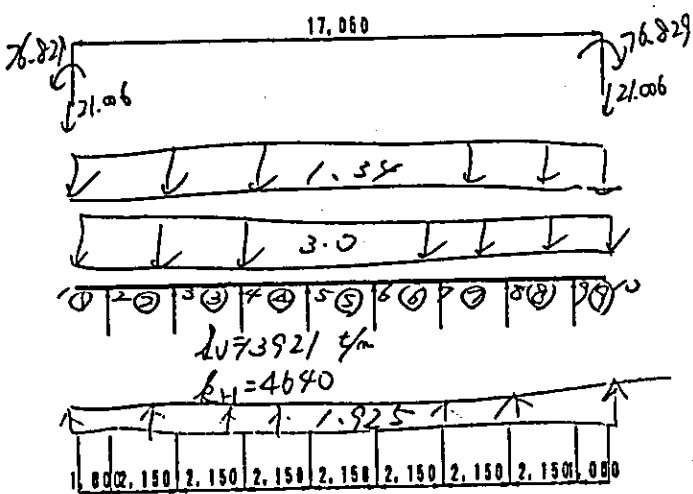 17,060
76.829 76.829
21.006 21.006
1.34
3.0
1 ① 2 ② 3 ③ 4 ④ 5 ⑤ 6 ⑥ 7 ⑦ 8 ⑧ 9 ⑨ 10
kv=13921 t/m
kH=4640
1.925
1,000 2,150 2,150 2,150 2,150 2,150 2,150 2,150 1,000